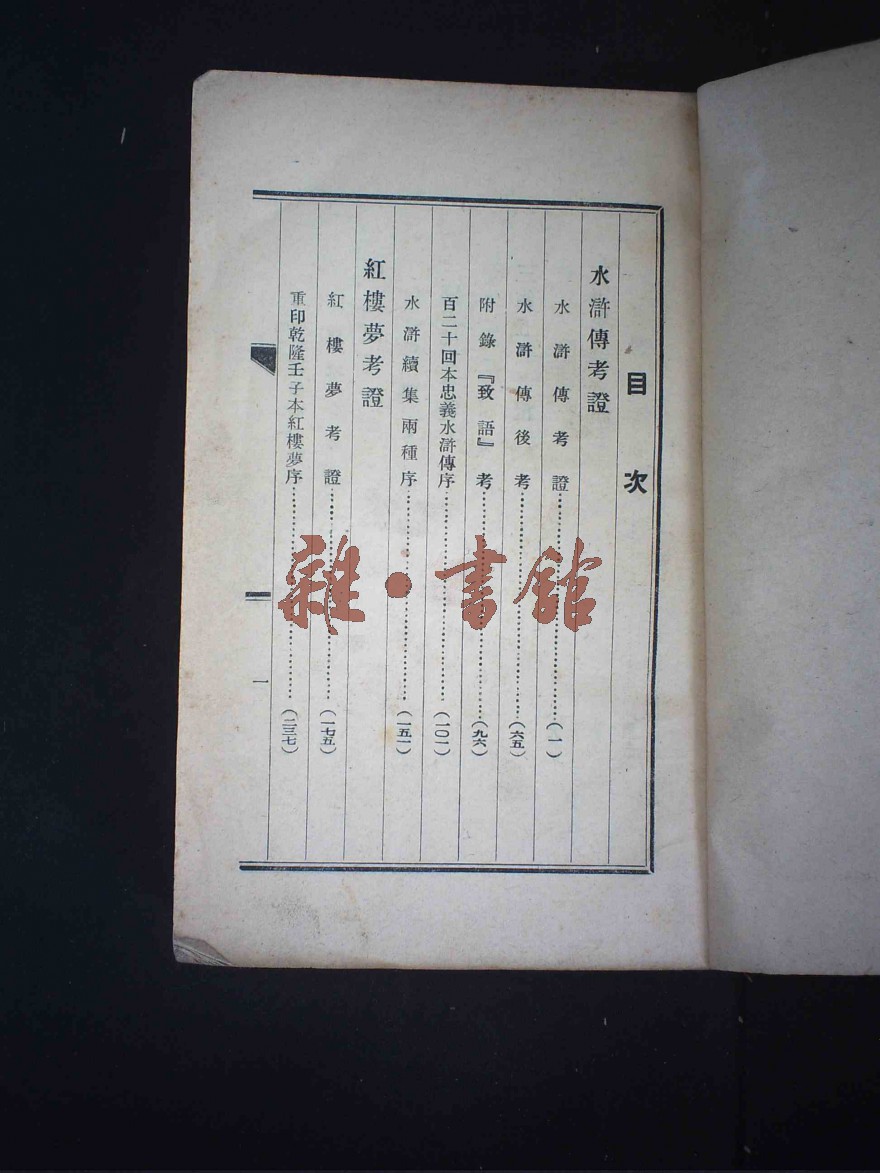 目次
水滸傳考證
水滸傳考證…………(一)
水滸傳後考…………(六五)
附錄『致語』考…………(九六)
百二十回本忠義水滸傳序…………(一〇一)
水滸續集兩種序…………(一五一)
紅樓夢考證
紅樓夢考證…………(一七五)
重印乾隆壬子本紅樓夢序…………(二三七)
一
雜·書館